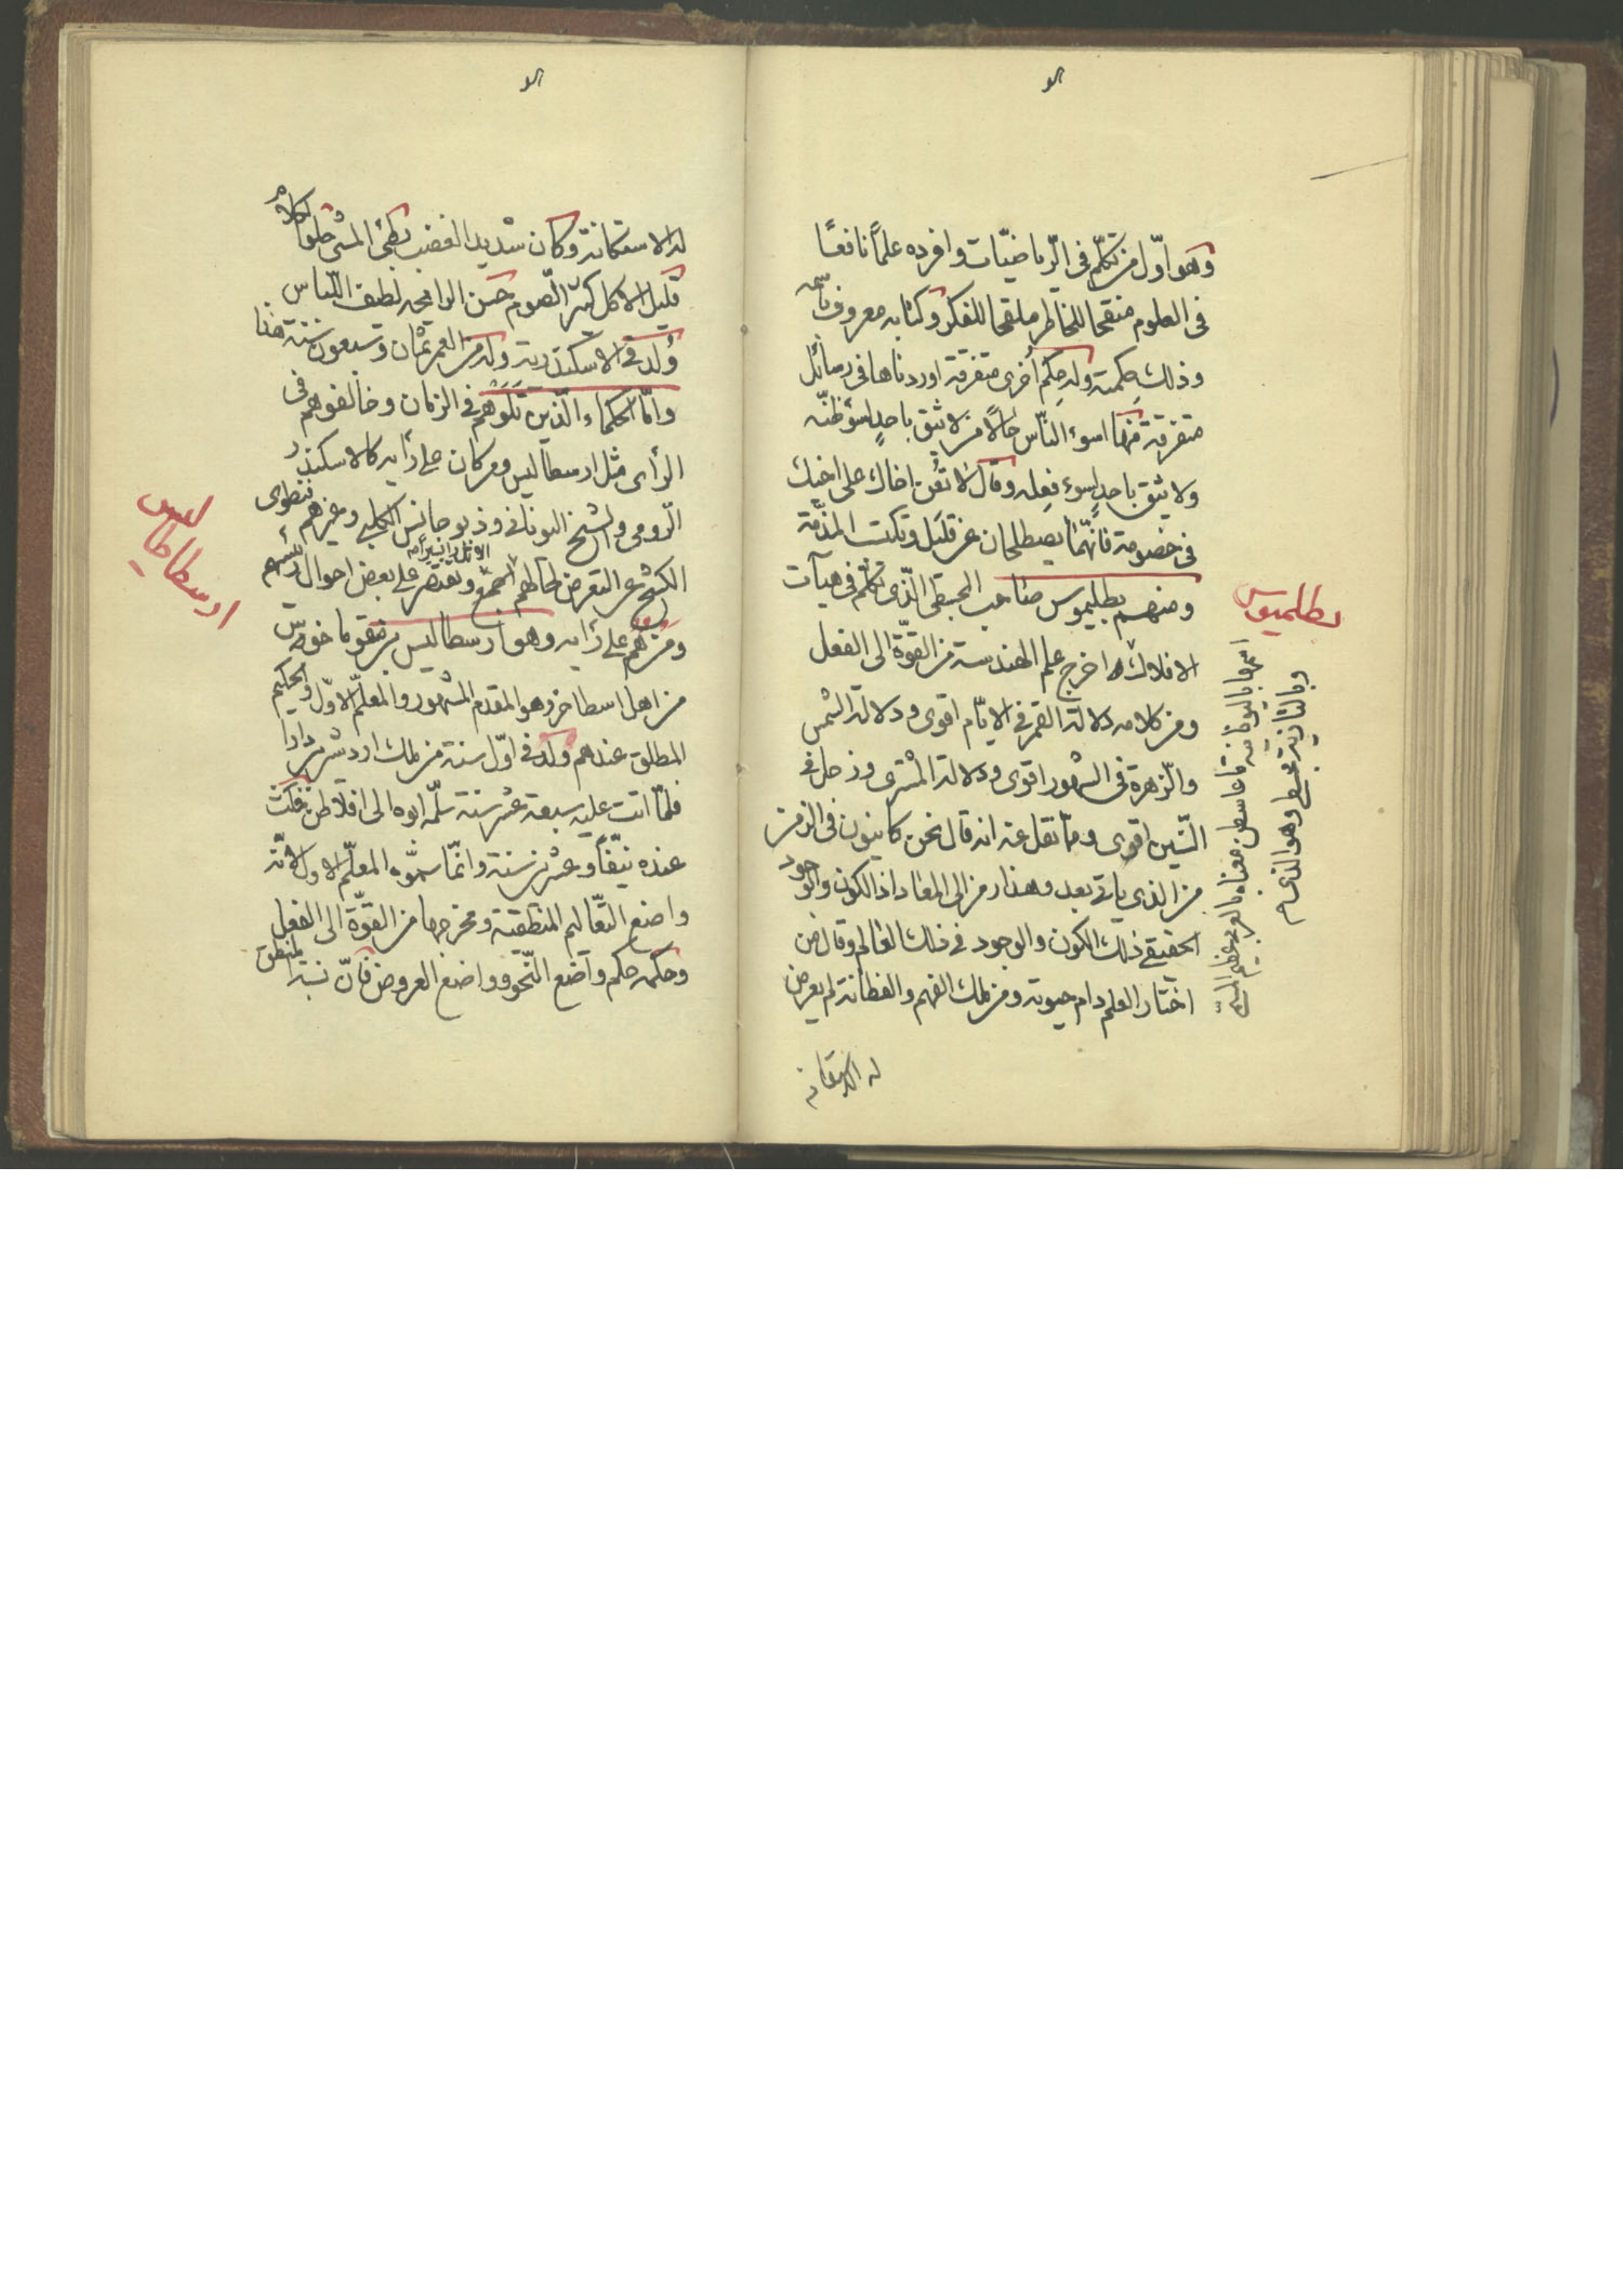 الو
وهو اوّل من تكلّم فى الرّياضيّات وافرده علماً نافعًا
فى العلوم منقحا للخاطر ملقحا للفكر وكتابه معروف باسمه
وذلك حكمته وله حِكم أخرى متفرقة اوردناها فى رسائل
متفرقة منها اسوء النّاس حالًا من لا يثق باحدٍ لسوء ظنّه
ولا يثق باحدٍ لسوء فعله وقال لا تعن اخاك على اخيك
فى خصومة فانّهما يصطلحان عن قليل وتكتسب المذمّة
ومنهم بطليموس صاحب المجسطى الّذى تكلّم فى هيآت
الافلاك و اخرج علم الهندسة من القوّة الى الفعل
ومن كلامه دلالة القمر فى الايّام اقوى ودلالة الشمس
والزّهرة فى الشهور اقوى ودلالة المشترى وزحل فى
السّنين اقوى ومما نقل عنه انه قال نحن كاينون فى الزمن
من الذى ياتى بعد وهذا رمز الى المعاد اذ الكون والوجود
الحقيقى ذلك الكون والوجود فى ذلك العالم وقال من
اختار العلم دام حيوته ومن ملك الفهم والفطانة لم يعرض
له الاستكانة
بطلميوس
وهو الذى
الو
له الاستكانة وكان شديد الغضب بطئ المشى حلو الكلام
قليل الاكل كثير الصّوم حسن الرايحه لطيف اللّباس
وُلد فى الاسكندرية وله من العمر ثمان وسبعون سنة هذا
وامّا الحكماء الّذين تَلَوهُم فى الزمان وخالفوهم فى
الرأى مثل ارسطاليس ومن كان على رأيه كالاسكندر
الرّومى والشيخ اليونانى وذيوجانس الكلبى وغيرهم فنطوى
الكشح عن التعرض لحالهم اجمع ونقتصر على بعض احوال رئيسهم
ومن هم على رأيه وهو ارسطاليس بن نيقوماخوس
من اهل اسطاخر وهو المقدم المشهور والمعلّم الاوّل والحكيم
المطلق عندهم ولد فى اوّل سنة من ملك اردشير بن دارا
فلمّا اتت عليه سبعة عشر سنة سلّمه ابوه الى افلاطن فمكث
عنده نيّفًا وعشرين سنة وانّما سمّوه المعلّم الاول لانّه
واضع التّعاليم المنطقية ومخرجها من القوّة الى الفعل
وحكمه حكم واضع النّحو وواضع العروض فانّ نسبة المنطق
ارسطاطاليس